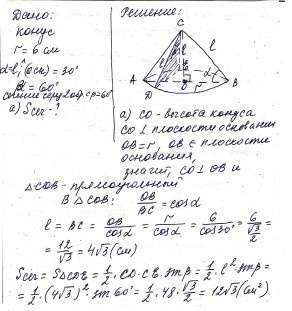 Дано:
конус
r = 6 см
d = 60°
а) Sсеч - ?
Решение:
C
l
l
l
α
A
D
O
r
B
а) CO - высота конуса
CO ⊥ плоскости основания
OB = r, OB ∈ плоскости
основания,
значит, CO ⊥ OB и
△COB - прямоугольный
В △COB: OB/BC = cosα
l = BC = OB/cosα = r/cosα = 6/cos30° = 6/(√3/2) =
= 12/√3 = 4√3 (см)
Sсеч = S△CDB = 1/2 · CD · CB · sinβ = 1/2 · l² · sinβ =
= 1/2 · (4√3)² · sin 60° = 1/2 · 48 · √3/2 = 12√3 (см²)